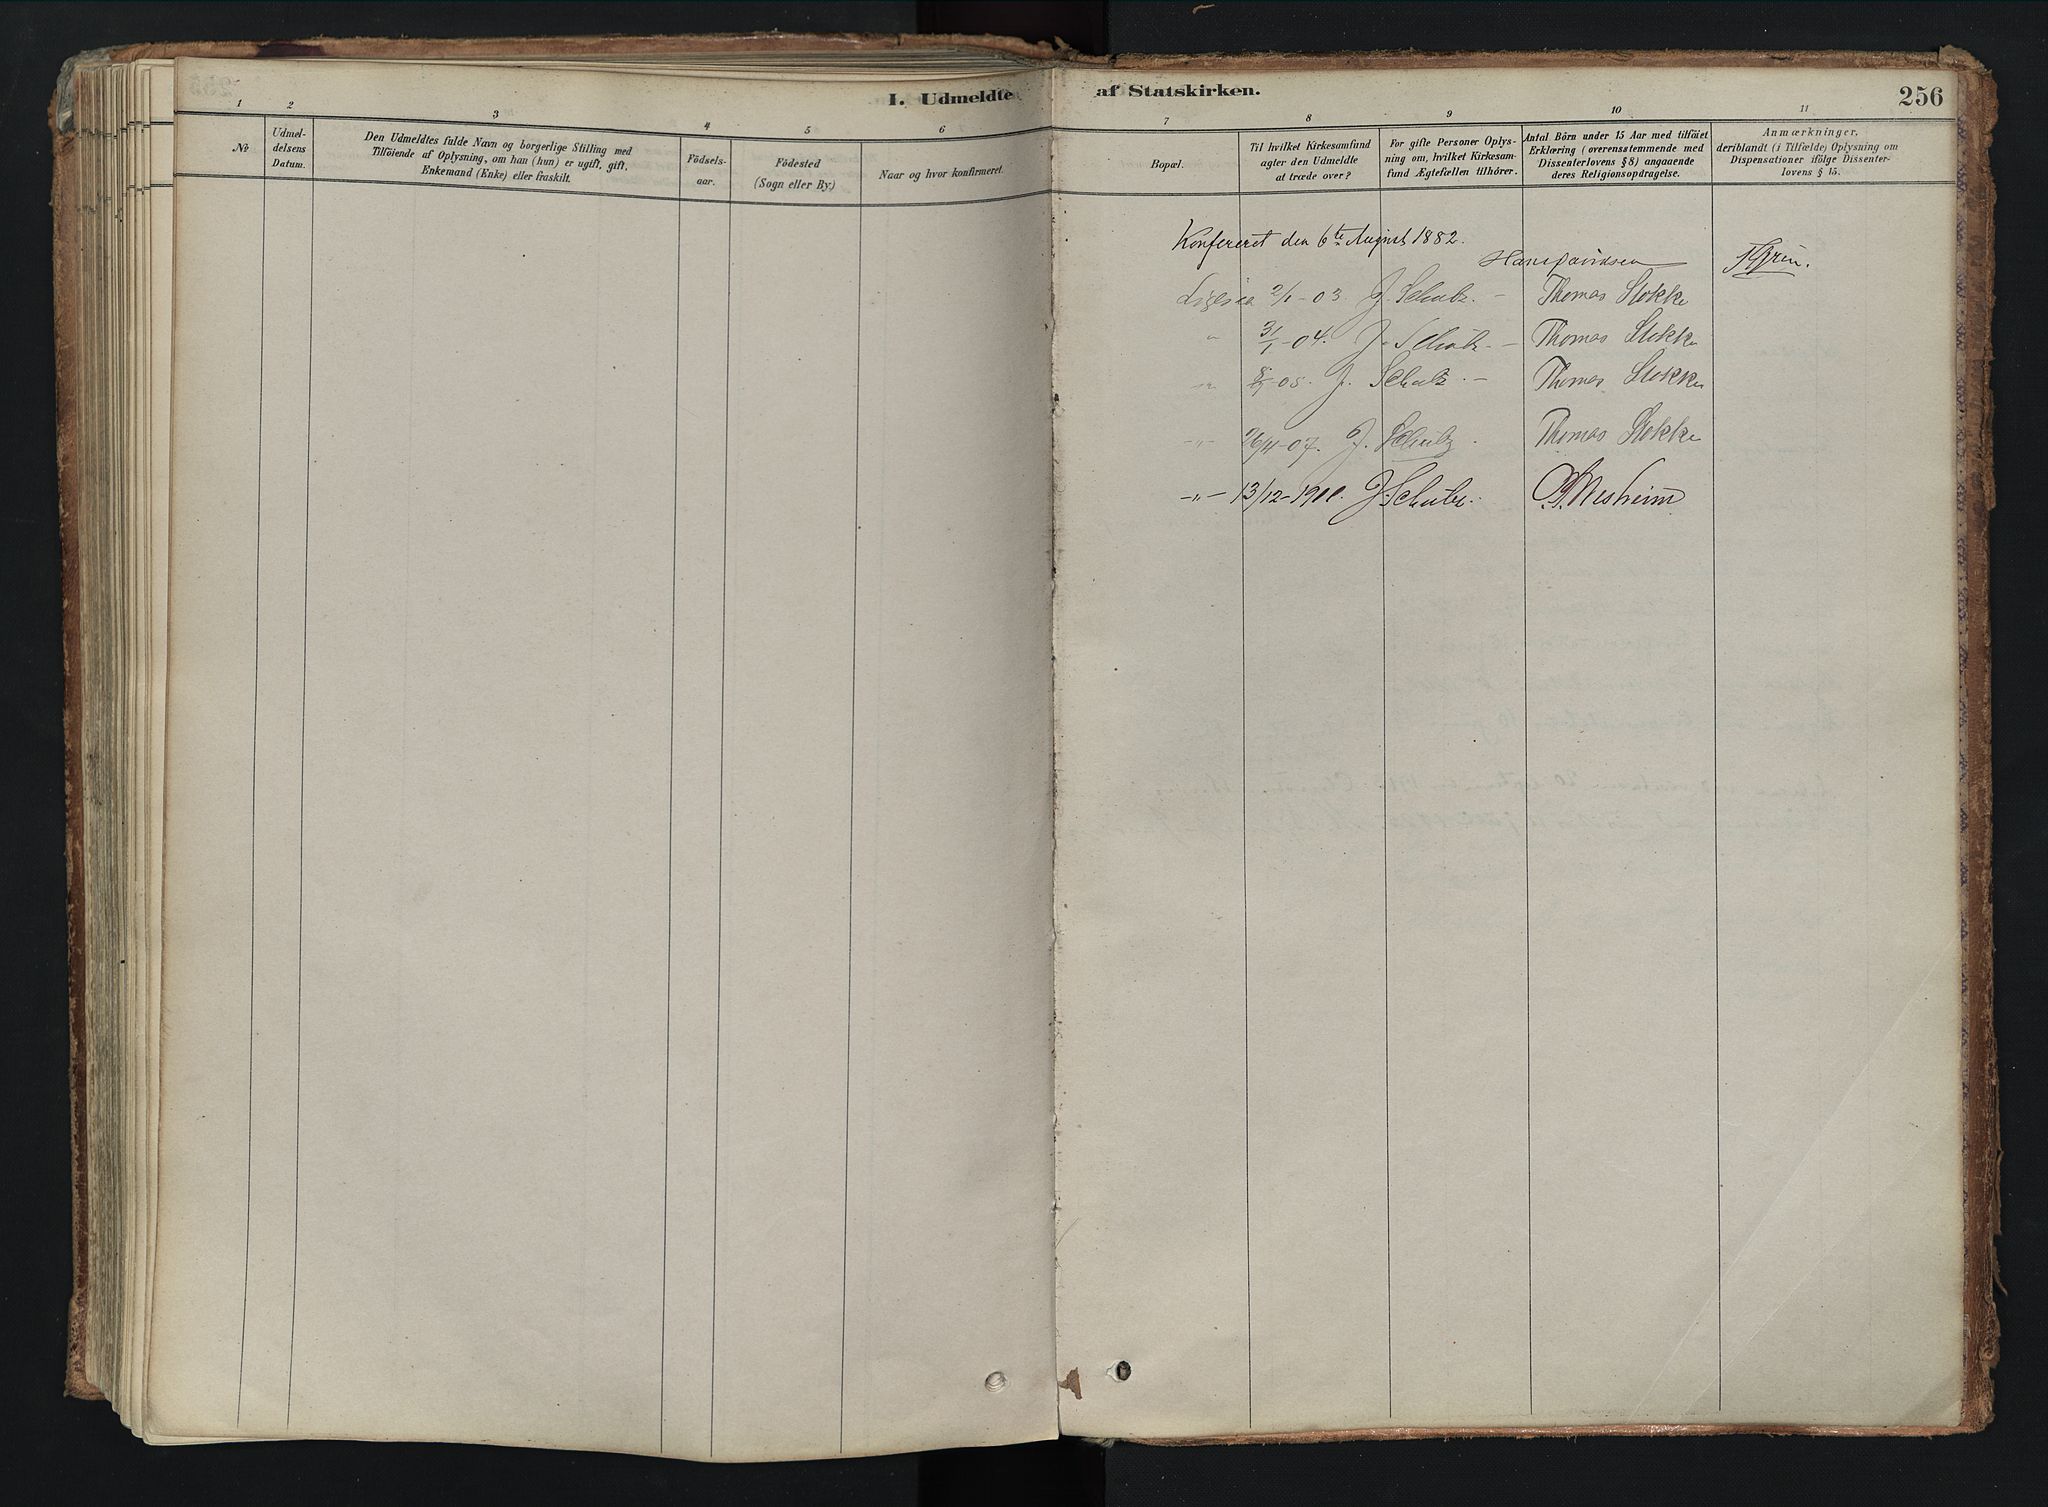 I. Udmeldte af Statskirken.
256
1 2 3 4 5 6 7 8 9 10 11
No
Udmel-
delsens
Datum.
Den Udmeldtes fulde Navn og borgerlige Stilling med
Tilföiende af Oplysning, om han (hun) er ugift, gift,
Enkemand (Enke) eller fraskilt.
Födsels-
aar.
Födested
(Sogn eller By.)
Naar og hvor konfirmeret.
Bopæl.
Til hvilket Kirkesamfund
agter den Udmeldte
at træde over?
For gifte Personer Oplys-
ning om, hvilket Kirkesam-
fund Ægtefællen tilhörer.
Antal Börn under 15 Aar med tilföiet
Erklæring (overensstemmende med
Dissenterlovens § 8) angaaende
deres Religionsopdragelse.
Anmærkninger,
deriblandt (i Tilfælde) Oplysning om
Dispensationer ifölge Dissenter-
lovens § 15.
Konfereret den 6te August 1882.
Hans Davidsen
2/1-03. J. Schulz. - Thomas Stokke
" 3/1-04. J. Schulz. - Thomas Stokke
-05. J. Schulz. - Thomas Stokke
-"- 26/4-07. J. Schulz. Thomas Stokke
-"- 13/12-19 J. Schulz.